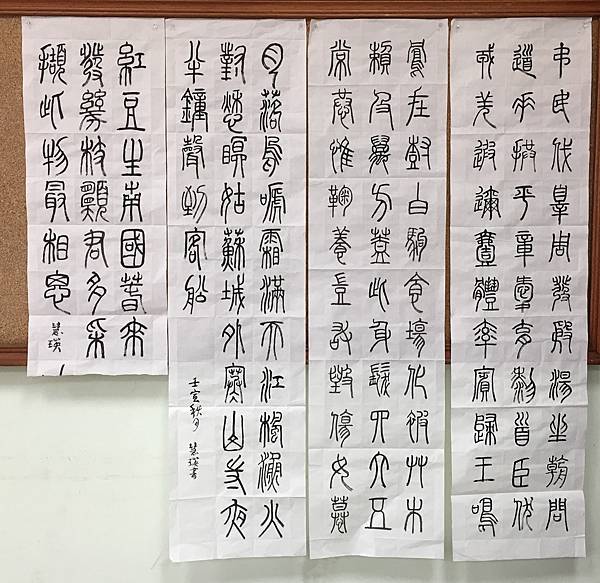 弔民伐罪周發殷湯坐朝問
道垂拱平章愛育黎首臣伏
戎羌遐邇壹體率賓歸王鳴
鳳在樹白駒食場化被艸木
賴及萬方蓋此身髮四大五
常恭惟鞠養豈敢毀傷女慕
月落烏啼霜滿天江楓漁火
對愁眠姑蘇城外寒山寺夜
半鐘聲到客船
壬寅秋月 慧瑛書
紅豆生南國春來
發幾枝願君多采
擷此物最相思
慧瑛